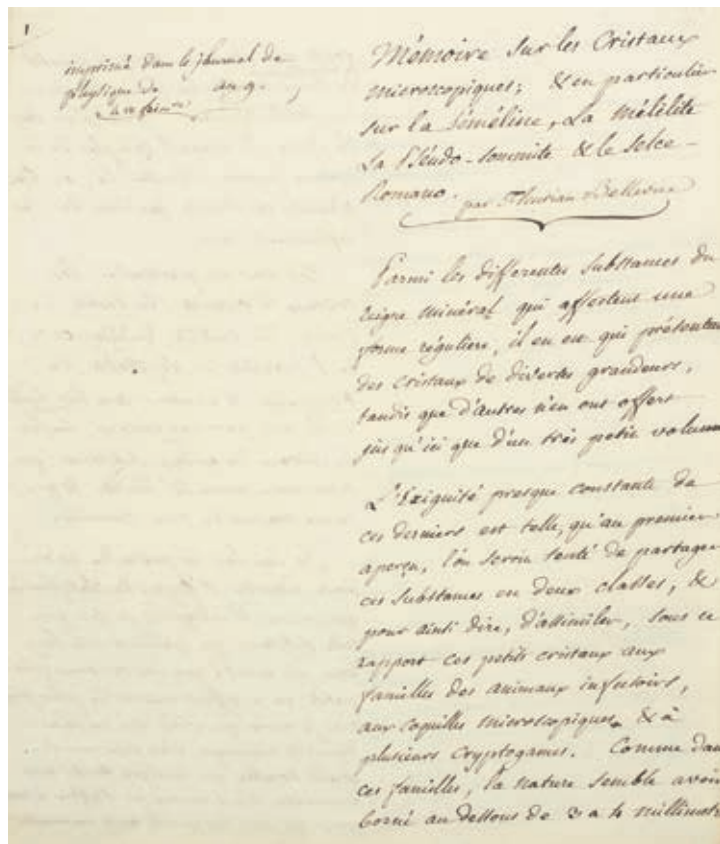 1
imprimé dans le journal de
physique de an 9.
Mémoire sur les Cristaux
microscopiques; & en particulier
sur la Séméline, La mélilite
La Pseudo-Sommite & le Selce-
Romano. par Fleuriau Bellevue
Parmi les différentes Substances du
règne minéral qui affectent une
forme régulière, il en est qui présentent
des cristaux de diverses grandeurs,
tandis que d'autres n'en ont offert
jusqu'ici que d'un très petit volume
L'Exiguité presque constante de
ces derniers est telle, qu'au premier
aperçu, l'on seroit tenté de partager
ces Substances en deux classes, &
pour ainsi dire, d'assimiler, sous ce
rapport ces petits cristaux aux
familles des animaux infusoirs,
aux coquilles microscopiques, & à
plusieurs Cryptogames. Comme dans
ces familles, la nature semble avoir
borné au dessous de 3 a 4 millimètr